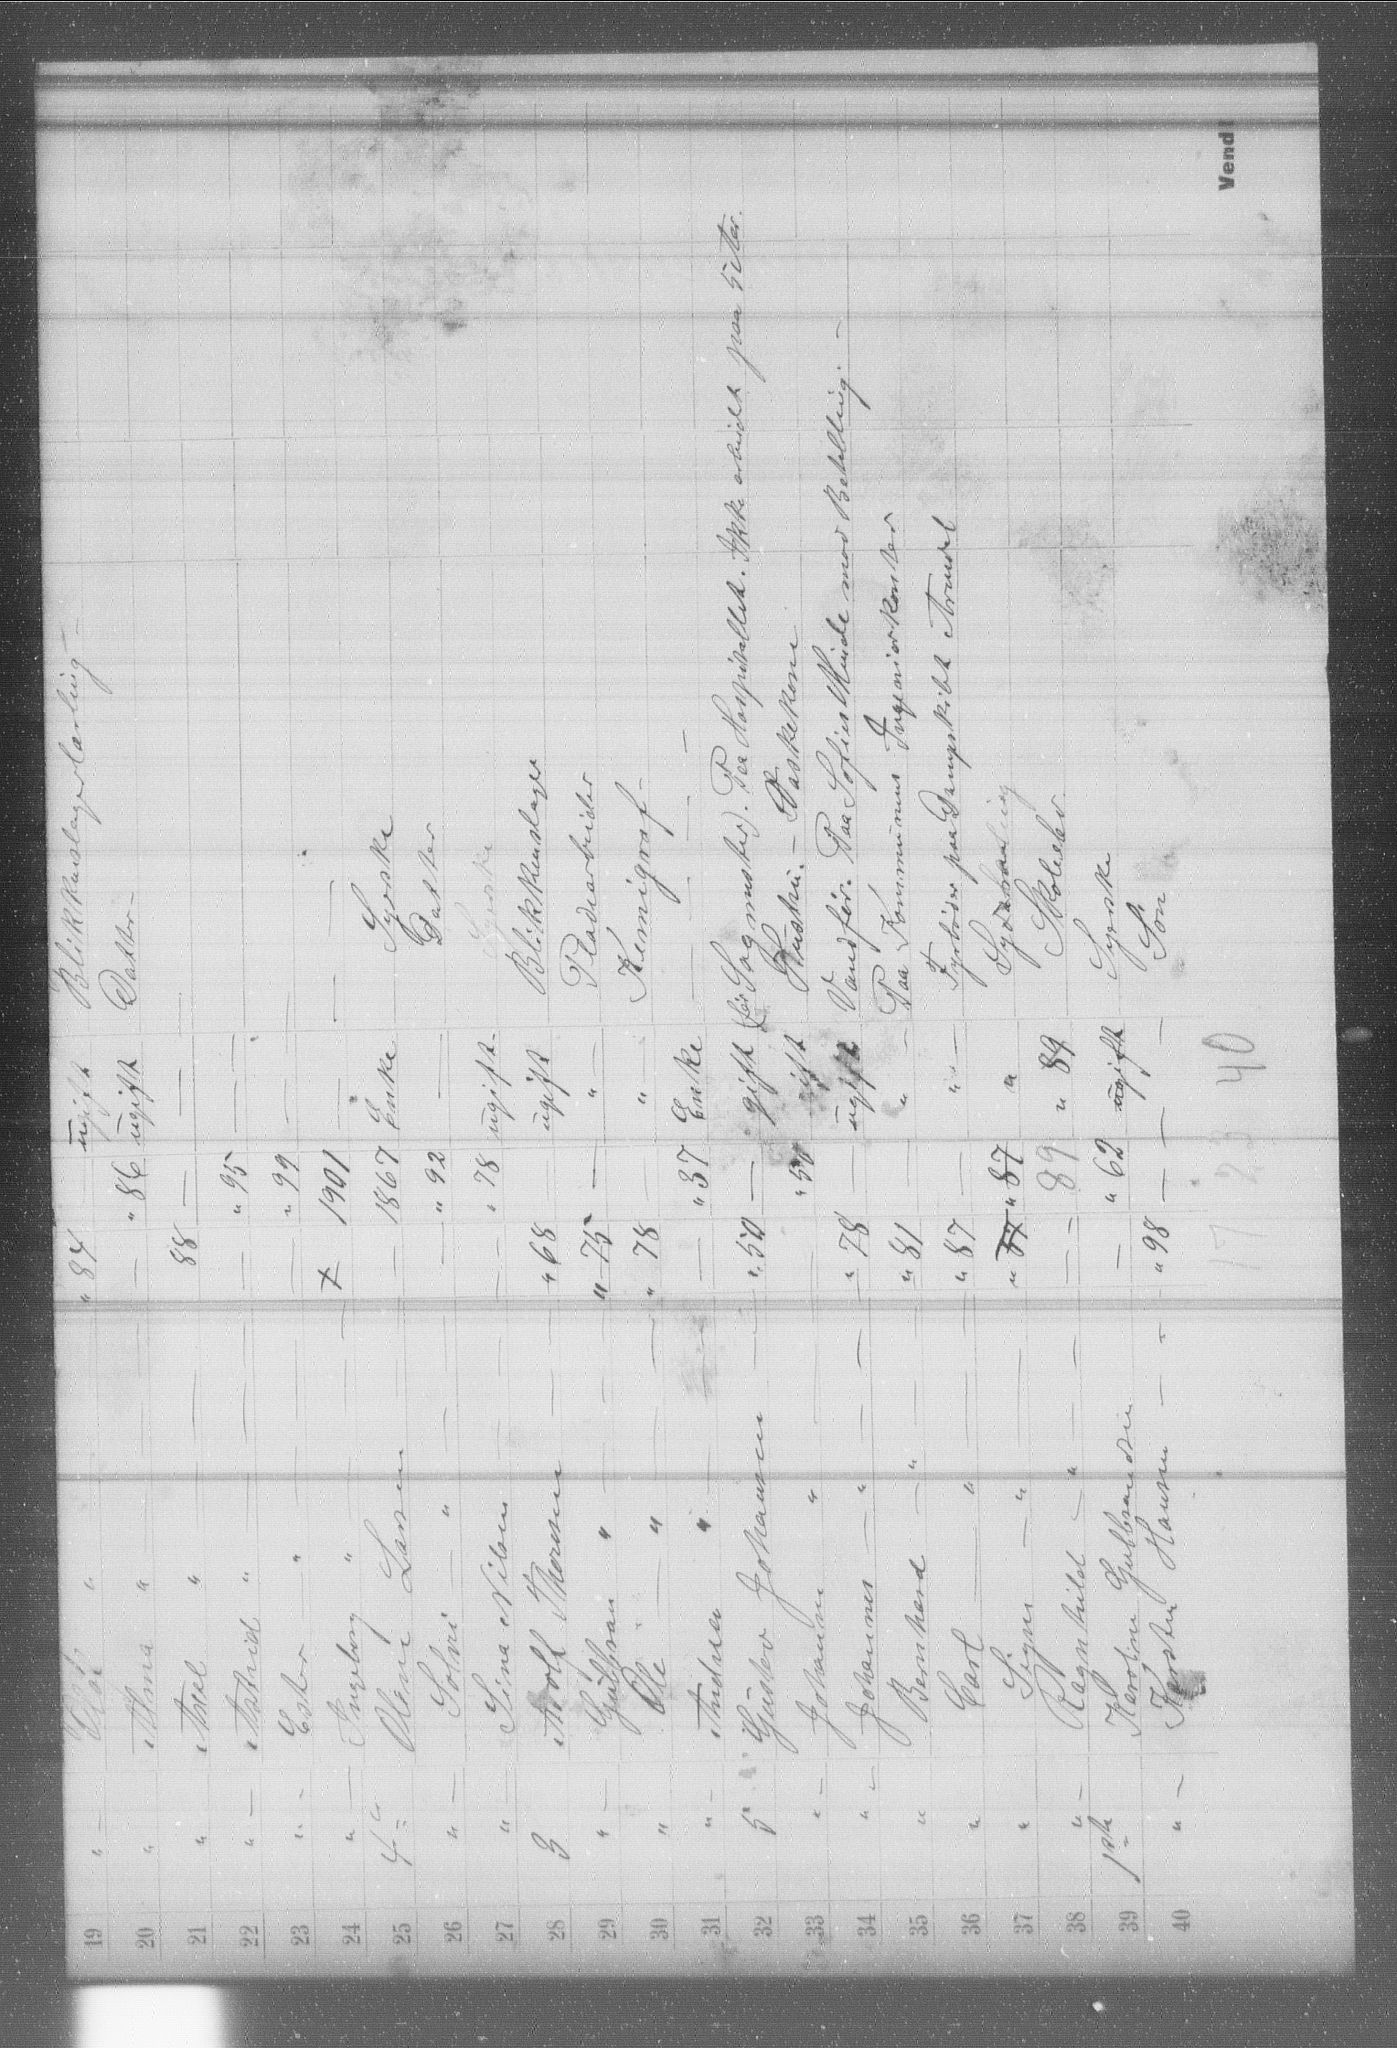 19 " — Olaf " " 84 ugift Blikkenslagerlærling —
20 " Alma " — — " 86 ugift Datter —
21 " Axel " — — 88 — —
22 " — Astrid " — — " 95 — —
23 " - Ester " — — " 99 — —
24 " — Ingeborg " — + 1901 — —
25 4 " Oline Larsen — — 1867 Enke Syerske
26 " — Solvei — " — — " 92 — Datter
27 " Sina Nilsen — — " 78 ugift Syerske
28 3 Adolf Thoresen " 68 — ugift Blikkenslager
29 " — " — " 75 — " — Pladearbeider
30 " Ole — " — — " 78 — " Kemigraf -
31 " - Andrea " — — " 37 Enke — — — —
32 5 Gustav Johansen — " 50 — gift (før Sagmester). Paa Hospitallet. Ikke arbeidet paa 5 Aar.
33 " — Johanne " — — " 50 gift Hustru. — Vaskekone
34 " — Johannes — " — — " 78 — ugift Vanfør. Paa Sofies Minde mod Betalling. —
35 " Bernhard — " " 81 — " — Paa Kommunens Ingeniørkontor
36 " Carl — " " 87 — " — Fyrbøder paa Dampskibet Arendal
37 " Signe — " — " 87 " 87 "
38 " - Ragnhild — " — — — 89 " 89 Skoleelev
39 1ste " Karoline Gulbrandsen — " 62 ugift Syerske
40 " — Karsten Hansen — — " 98 — — — Søn
17 23 40
Vend!